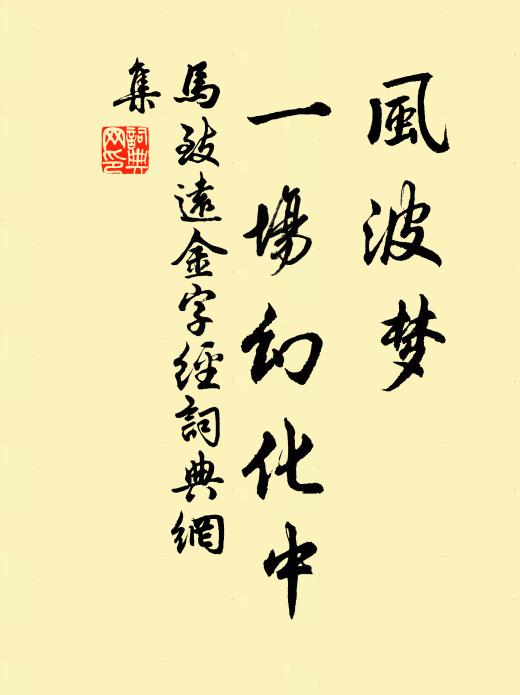 風波梦
一場幻化中
馬致遠金字經詞典網
集
詞典
网印